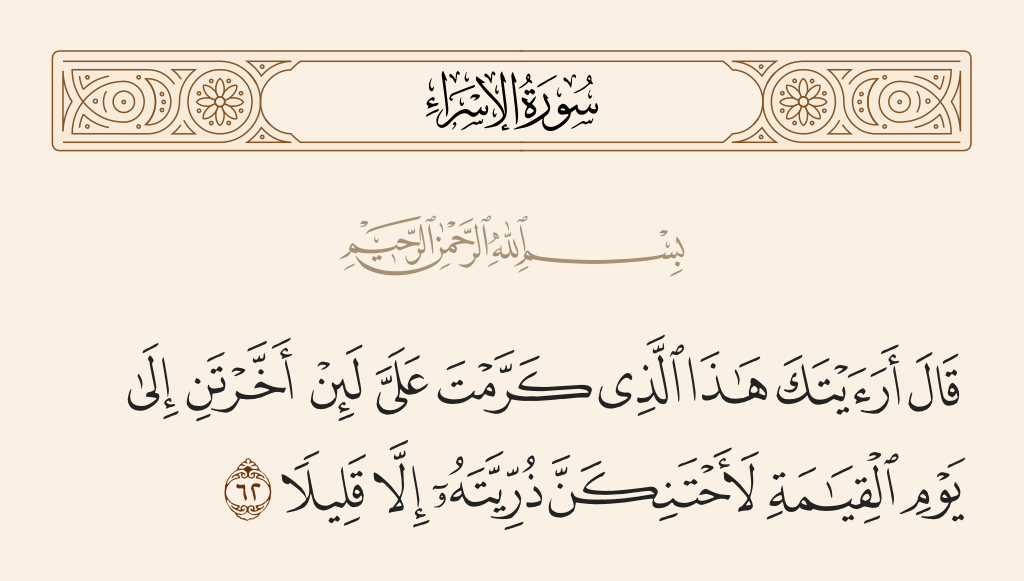 سُورَةُ الإِسْرَاءِ
بِسْمِ ٱللَّهِ ٱلرَّحْمَٰنِ ٱلرَّحِيمِ
قَالَ أَرَءَيْتَكَ هَـٰذَا ٱلَّذِى كَرَّمْتَ عَلَىَّ لَئِنْ أَخَّرْتَنِ إِلَىٰ
يَوْمِ ٱلْقِيَـٰمَةِ لَأَحْتَنِكَنَّ ذُرِّيَّتَهُۥٓ إِلَّا قَلِيلًا ٦٢